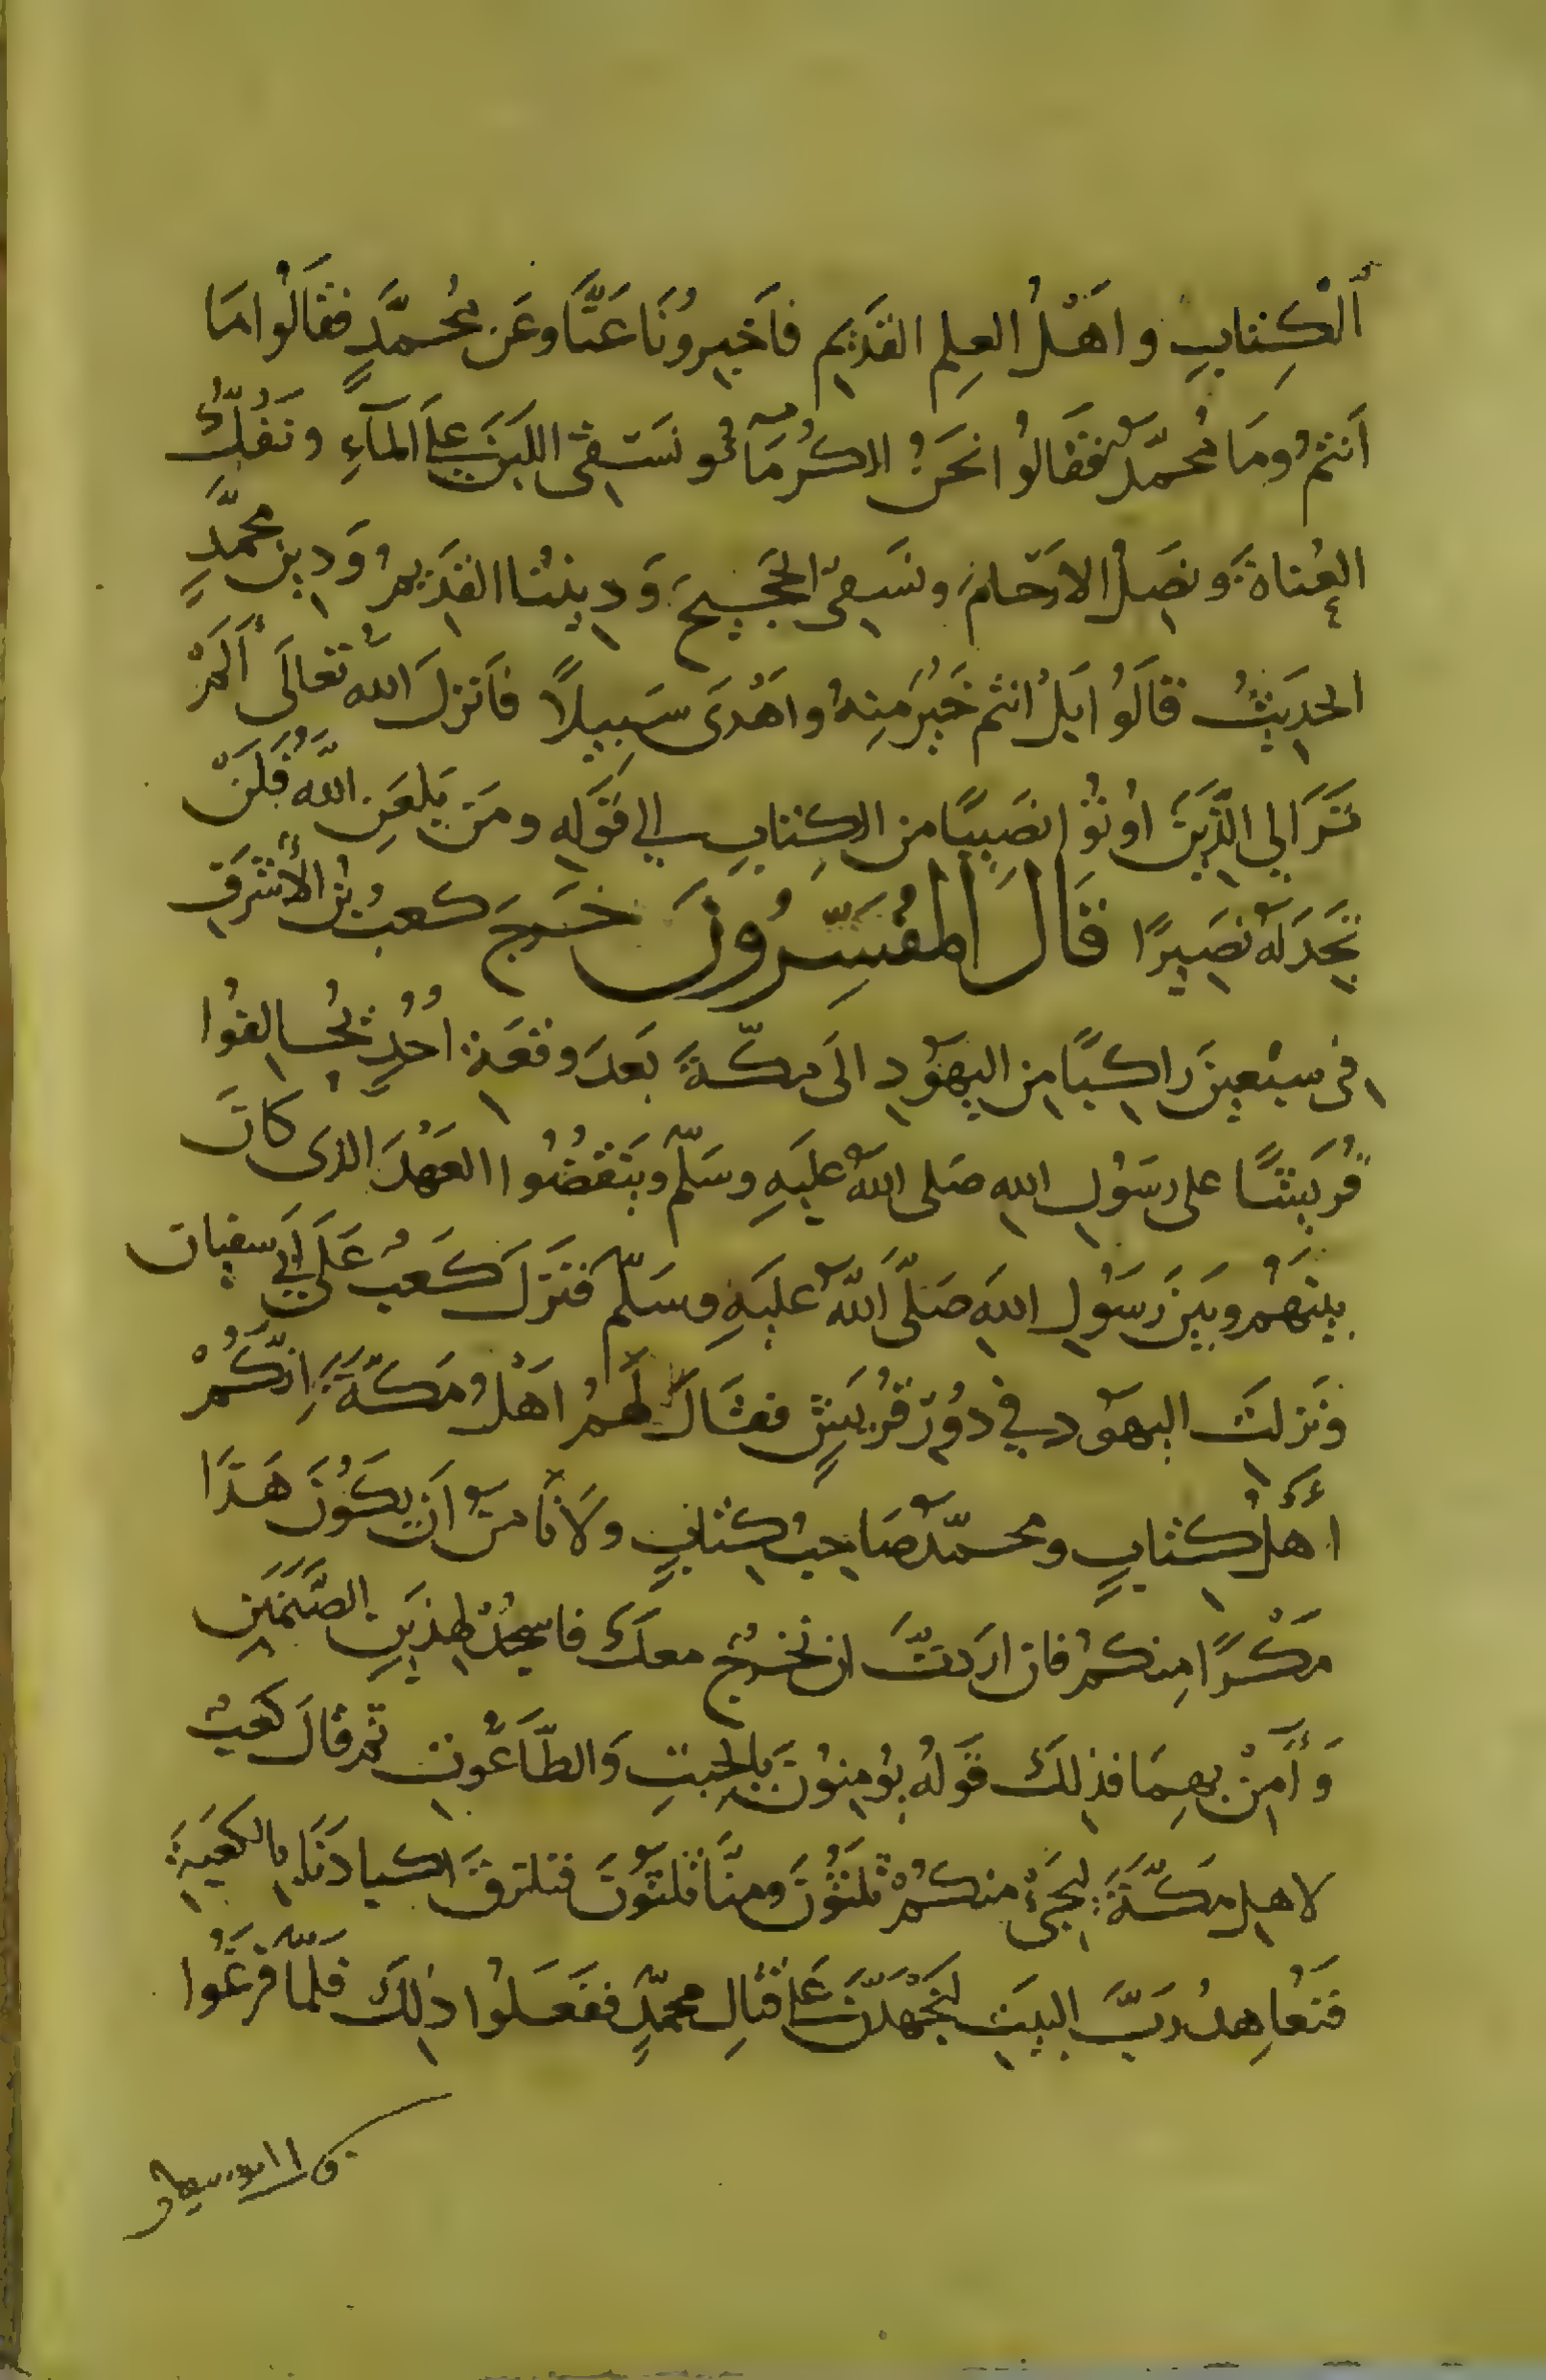 الْكِتابِ واَهْلُ العِلم القَديم فاَخبِرونَا عَنَّا وعَن مُحمَّدٍ فقَالُوا مَا
اَنتمُ ومَا مُحمّدٌ فقَالُوا نحَنُ الكُرمَآءُ ونسَقِى اللبَنَ عَلىَ المآءِ ونَفُكُّ
العُناةَ ونصَلُ الارَحَامَ ونسَقِى الحَجيجَ وَدِينُنا القدَيمُ وَدِين محمَّدٍ
الحدَيثُ قالَوُا بَلْ انتم خَيرٌ مِنهُ واَهْدىَ سَبِيلًا فاَنزلَ اللهُ تعالَى اَلَمْ
تَرَ الي الذَّينَ اوُتوُا نصَيِبًا من الكِتابِ الي قَولهِ ومَن يَلعَنِ اللهُ فلَنْ
تجَدَ لَهُ نصَيرًا قَالَ المُفَسِّرُونَ خَرجَ كعبُ بنُ الأَشرَفِ
فى سبْعينَ رَاكبًا من اليهَوُدِ الىَ مكّةَ بَعدَ وقعَةِ اُحُدٍ ليُحالفوُا
قُريَشًا على رسَوُلِ اللهِ صَلى اللهُ عليَهِ وسَلّم وينَقضُوُا العهَدْ الذى كانَ
بينَهُم وبيَنَ رَسَوُلِ اللهِ صَلَّى اَللهُ عليَهِ وسَلّم فنَزلَ كَعبُ عَلىَ اَبي سفيان
ونَزلَتَ اليهوُد في دوُر قرُيَشٍ فقَالَ لهَمُ اَهْلُ مكّةَ اِنّكُمْ
أَهلُ كتابٍ ومحمّدٌ صَاحبُ كتابٍ ولَا نأمنُ اَن يكوُنَ هَذَا
مَكْرًا مِنكمُ فان اردَتَّ ان نخرُج معكَ فاسجُدْ لهذَينِ الصَّنَمَينِ
وَأٓمِنْ بهِمَا فذلكَ قَولهُ يؤُمِنوُنَ بالجِبتِ وَالطّاغُوتِ ثم قالَ كعبُ
لاهلِ مكّةَ ليَجىْ منكُمْ ثلثَوُنَ ومنَّا ثلثوُنَ فنلزقُ اكبادَنَا بالكعَبةِ
فنَعُاهِدُ ربَّ البيَتِ لنَجهَدَنَّ عَلَى قتالِ محمّدٍ ففَعَلوُا ذلِكَ فلَمّا فَرغُوا